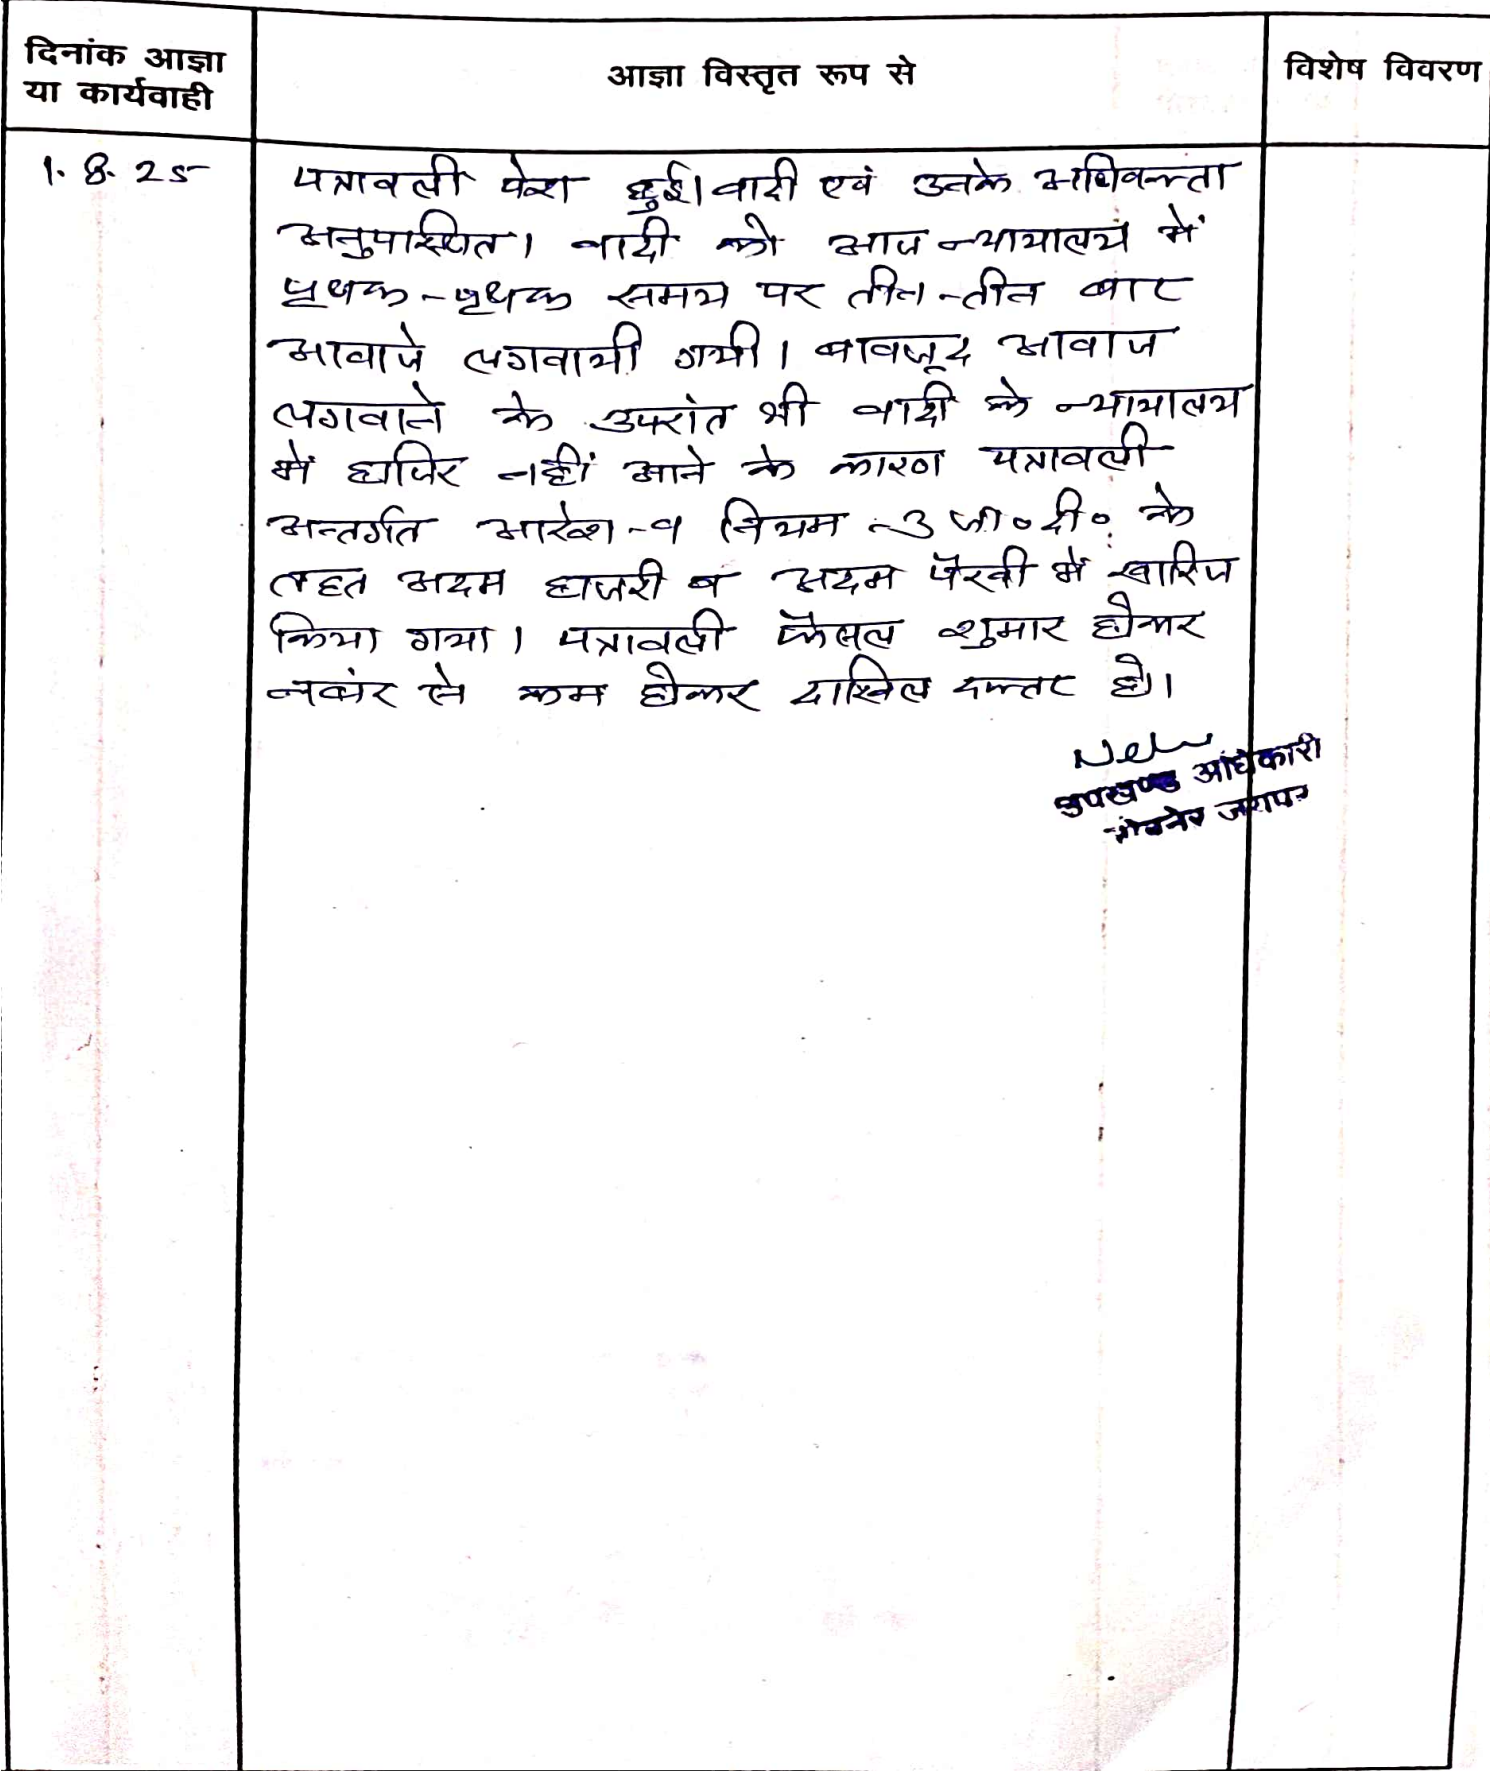 दिनांक आज्ञा
या कार्यवाही
आज्ञा विस्तृत रूप से
विशेष विवरण
1. 8. 25
पत्रावली पेश हुई। वादी एवं उनके अधिवक्ता
अनुपास्थित। वादी को आज न्यायालय में
पृथक-पृथक समय पर तीन-तीन बार
आवाजे लगवायी गयी। बावजूद आवाज
लगवाने के उपरांत भी वादी के न्यायालय
में हाजिर नहीं आने के कारण पत्रावली
अन्तर्गत आदेश-9 नियम -3 जा०दी० के
तहत अदम हाजरी व अदम पैरवी में खारिज
किया गया। पत्रावली फैसल शुमार होकर
नबंर से कम होकर दाखिल दफ्तर हो।
उपखण्ड अधिकारी